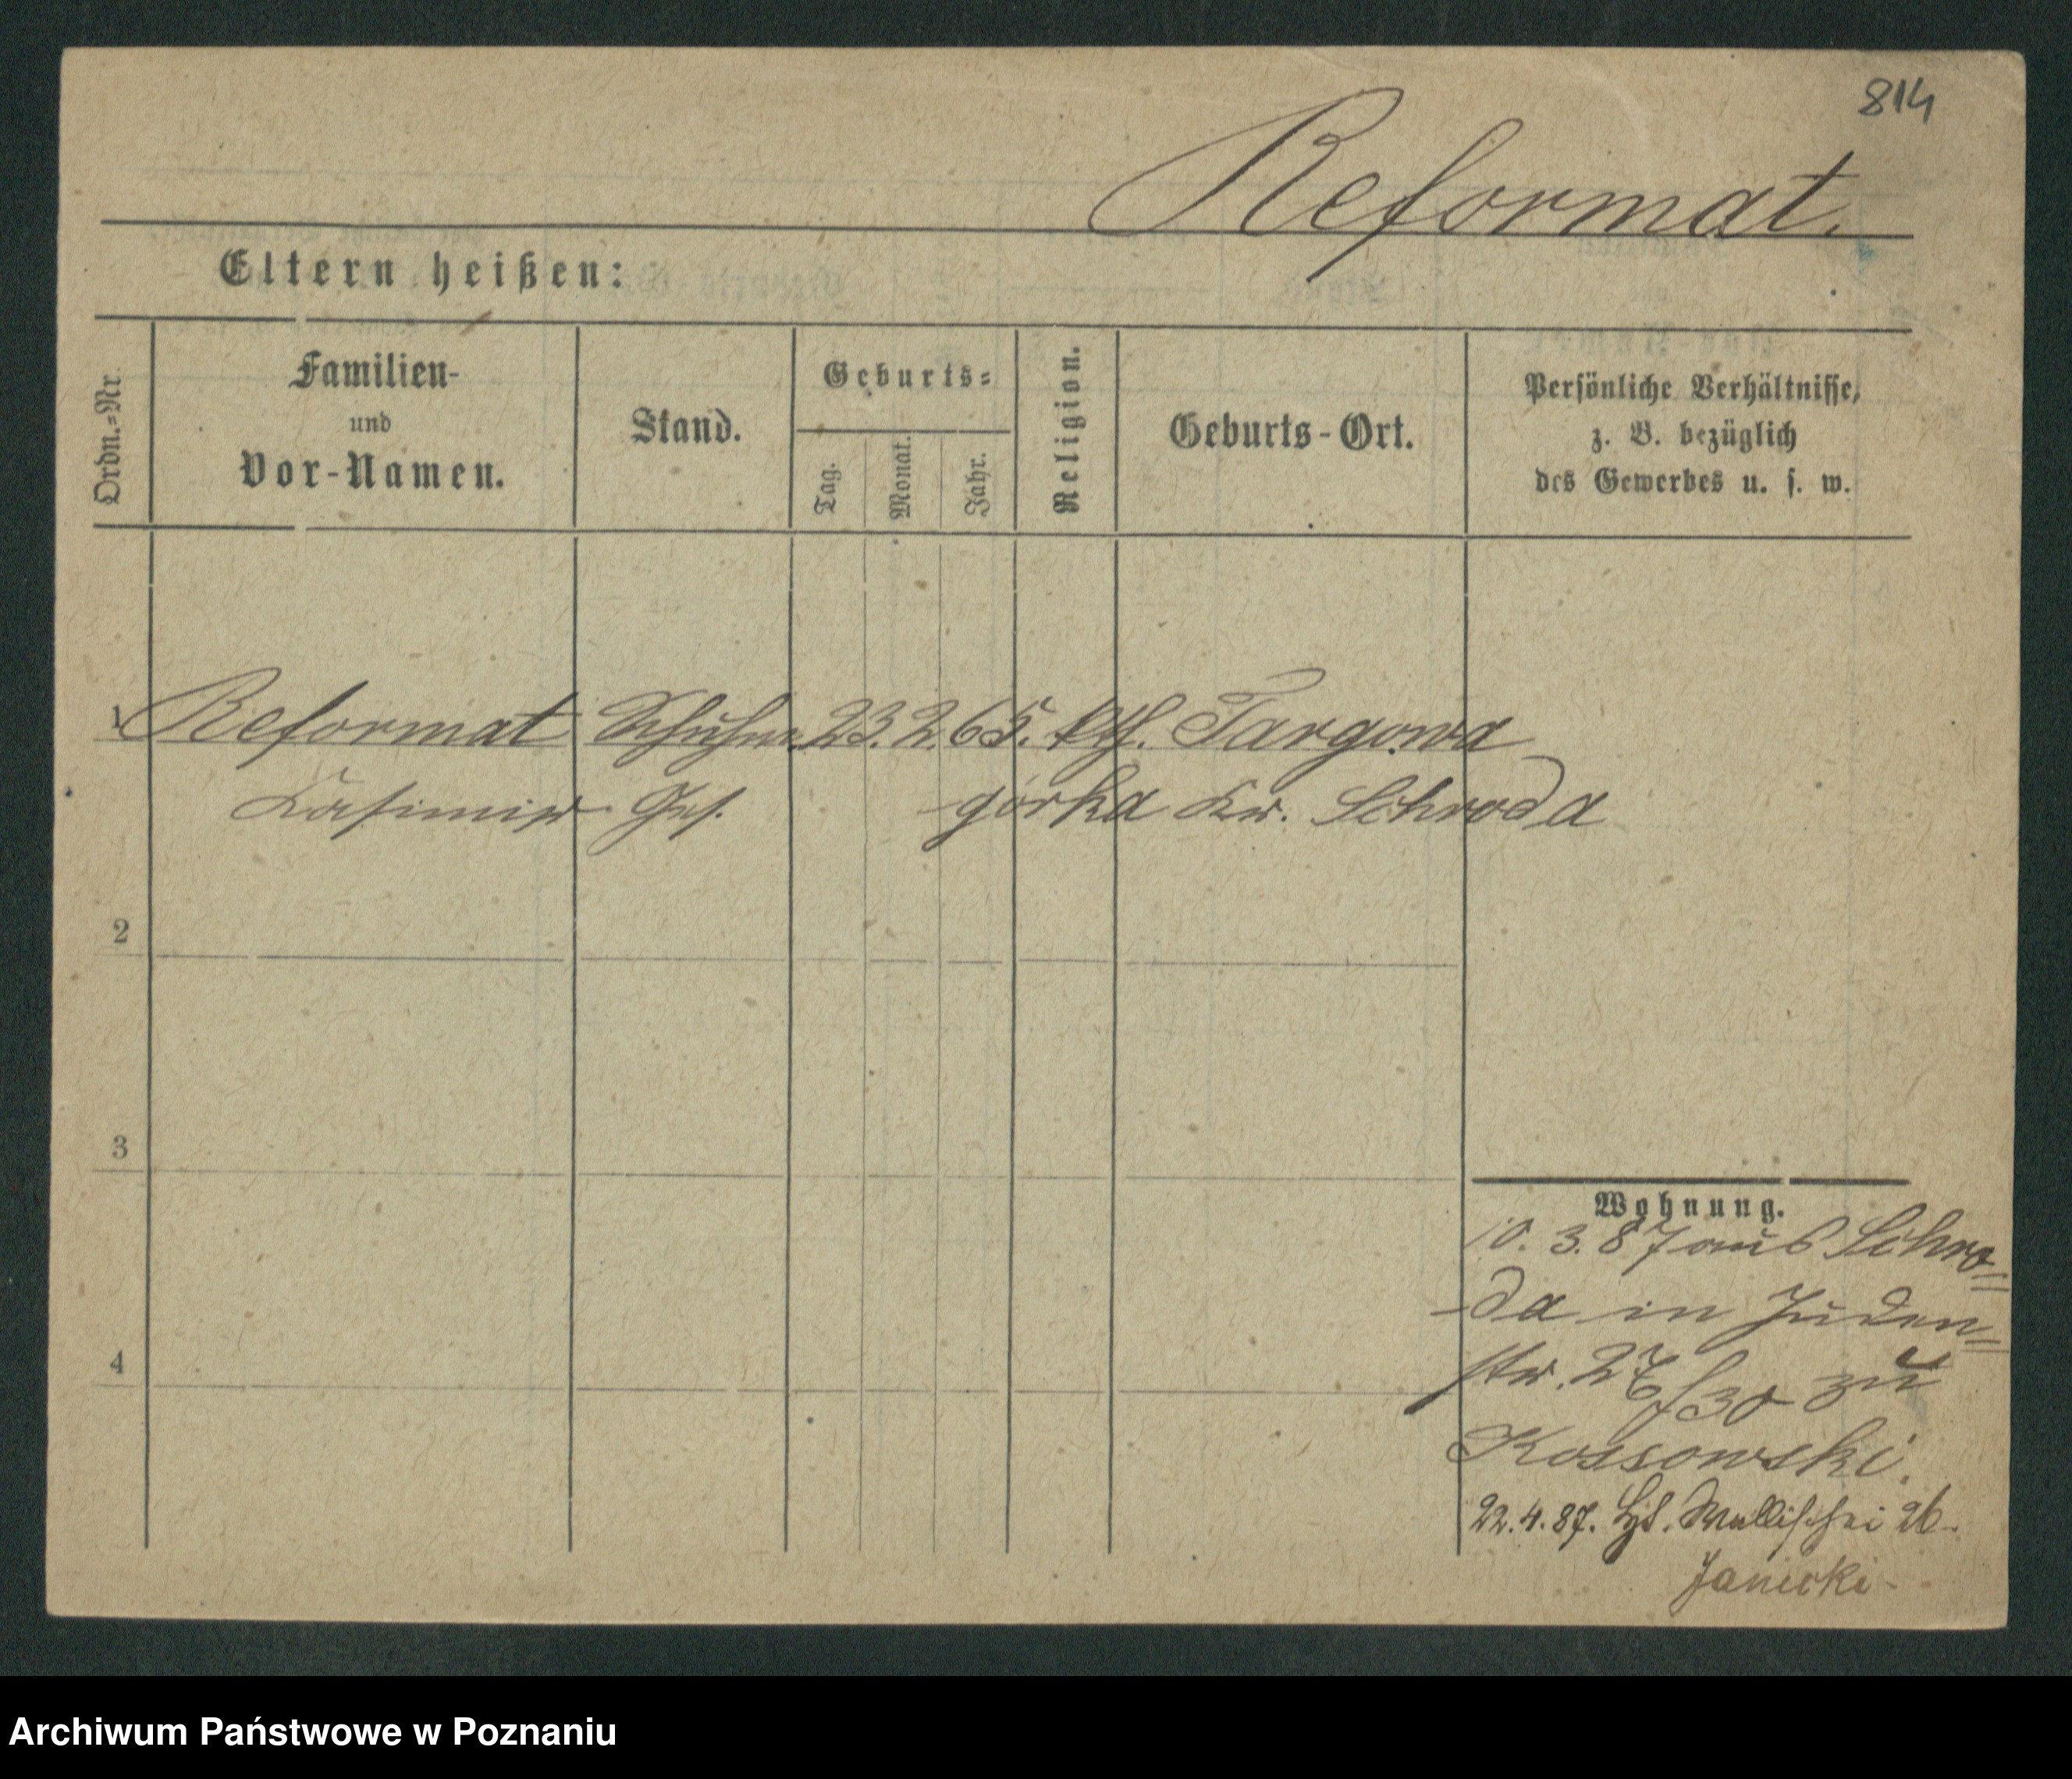 814
Reformat.
Eltern heißen:
Ordn.=Nr.
Familien-
und
Vor-Namen.
Stand.
Geburts=
Tag.
Monat.
Jahr.
Religion.
Geburts-Ort.
Persönliche Verhältnisse,
z. B. bezüglich
des Gewerbes u. s. w.
1 Reformat Schuhm. 23. 2. 65. kth. Targowa
Casimir Ges. gorka Kr. Schroda
2
3
4
Wohnung.
10. 3. 87 aus Schro=
da in Juden=
str. /30 zu
Kossowski.
22. 4. 87. Wallischei 26.
Janicki
Archiwum Państwowe w Poznaniu